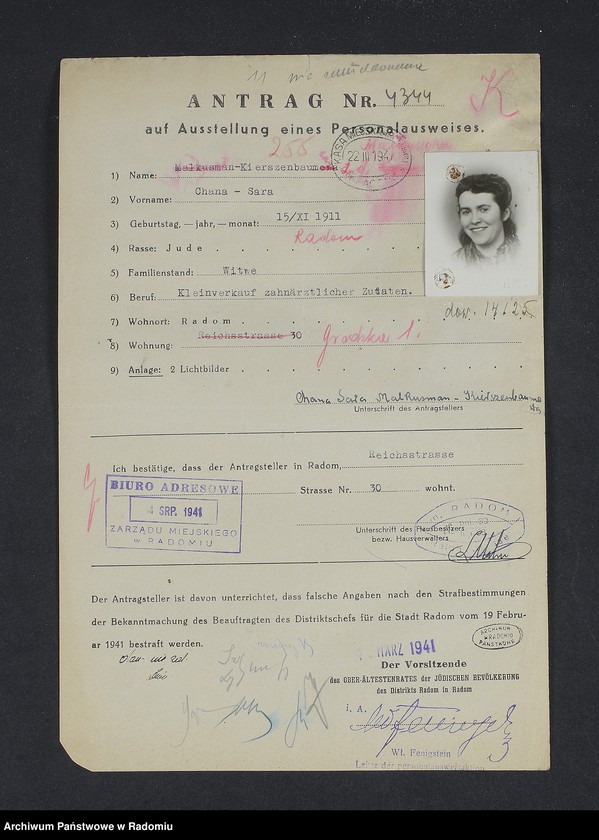 ANTRAG NR. 4344
K
auf Ausstellung eines Personalausweises.
255
22 III 1941
1) Name: Malkusman-Kierszenbaumowa
2) Vorname: Chana - Sara
3) Geburtstag, — jahr, — monat: 15/XI 1911
Radom
4) Rasse: Jude
5) Familienstand: Witwe
6) Beruf: Kleinverkauf zahnärztlicher Zutaten.
dow. 14125
7) Wohnort: Radom
8) Wohnung: Reichsstrasse 30 Grodzka 1.
9) Anlage: 2 Lichtbilder
Chana Sara Malkusman - Kierszenbaumowa
Unterschrift des Antragstellers
Ich bestätige, dass der Antragsteller in Radom, Reichsstrasse
Strasse Nr. 30 wohnt.
BIURO ADRESOWE
4 SRP. 1941
ZARZĄDU MIEJSKIEGO
W RADOMIU
RADOM
Unterschrift des Hausbesitzers
bezw. Hausverwalters
Der Antragsteller ist davon unterrichtet, dass falsche Angaben nach den Strafbestimmungen
der Bekanntmachung des Beauftragten des Distriktschefs für die Stadt Radom vom 19 Febru-
ar 1941 bestraft werden.
ARCHIWUM
PAŃSTWOWE
W RADOMIU
MÄRZ 1941
Der Vorsitzende
des OBER-ÄLTESTENRATES DER JÜDISCHEN BEVÖLKERUNG
des Distrikts Radom in Radom
i. A.
Wł. Fenigstein
Leiter der Personalausweisaktion
Archiwum Państwowe w Radomiu